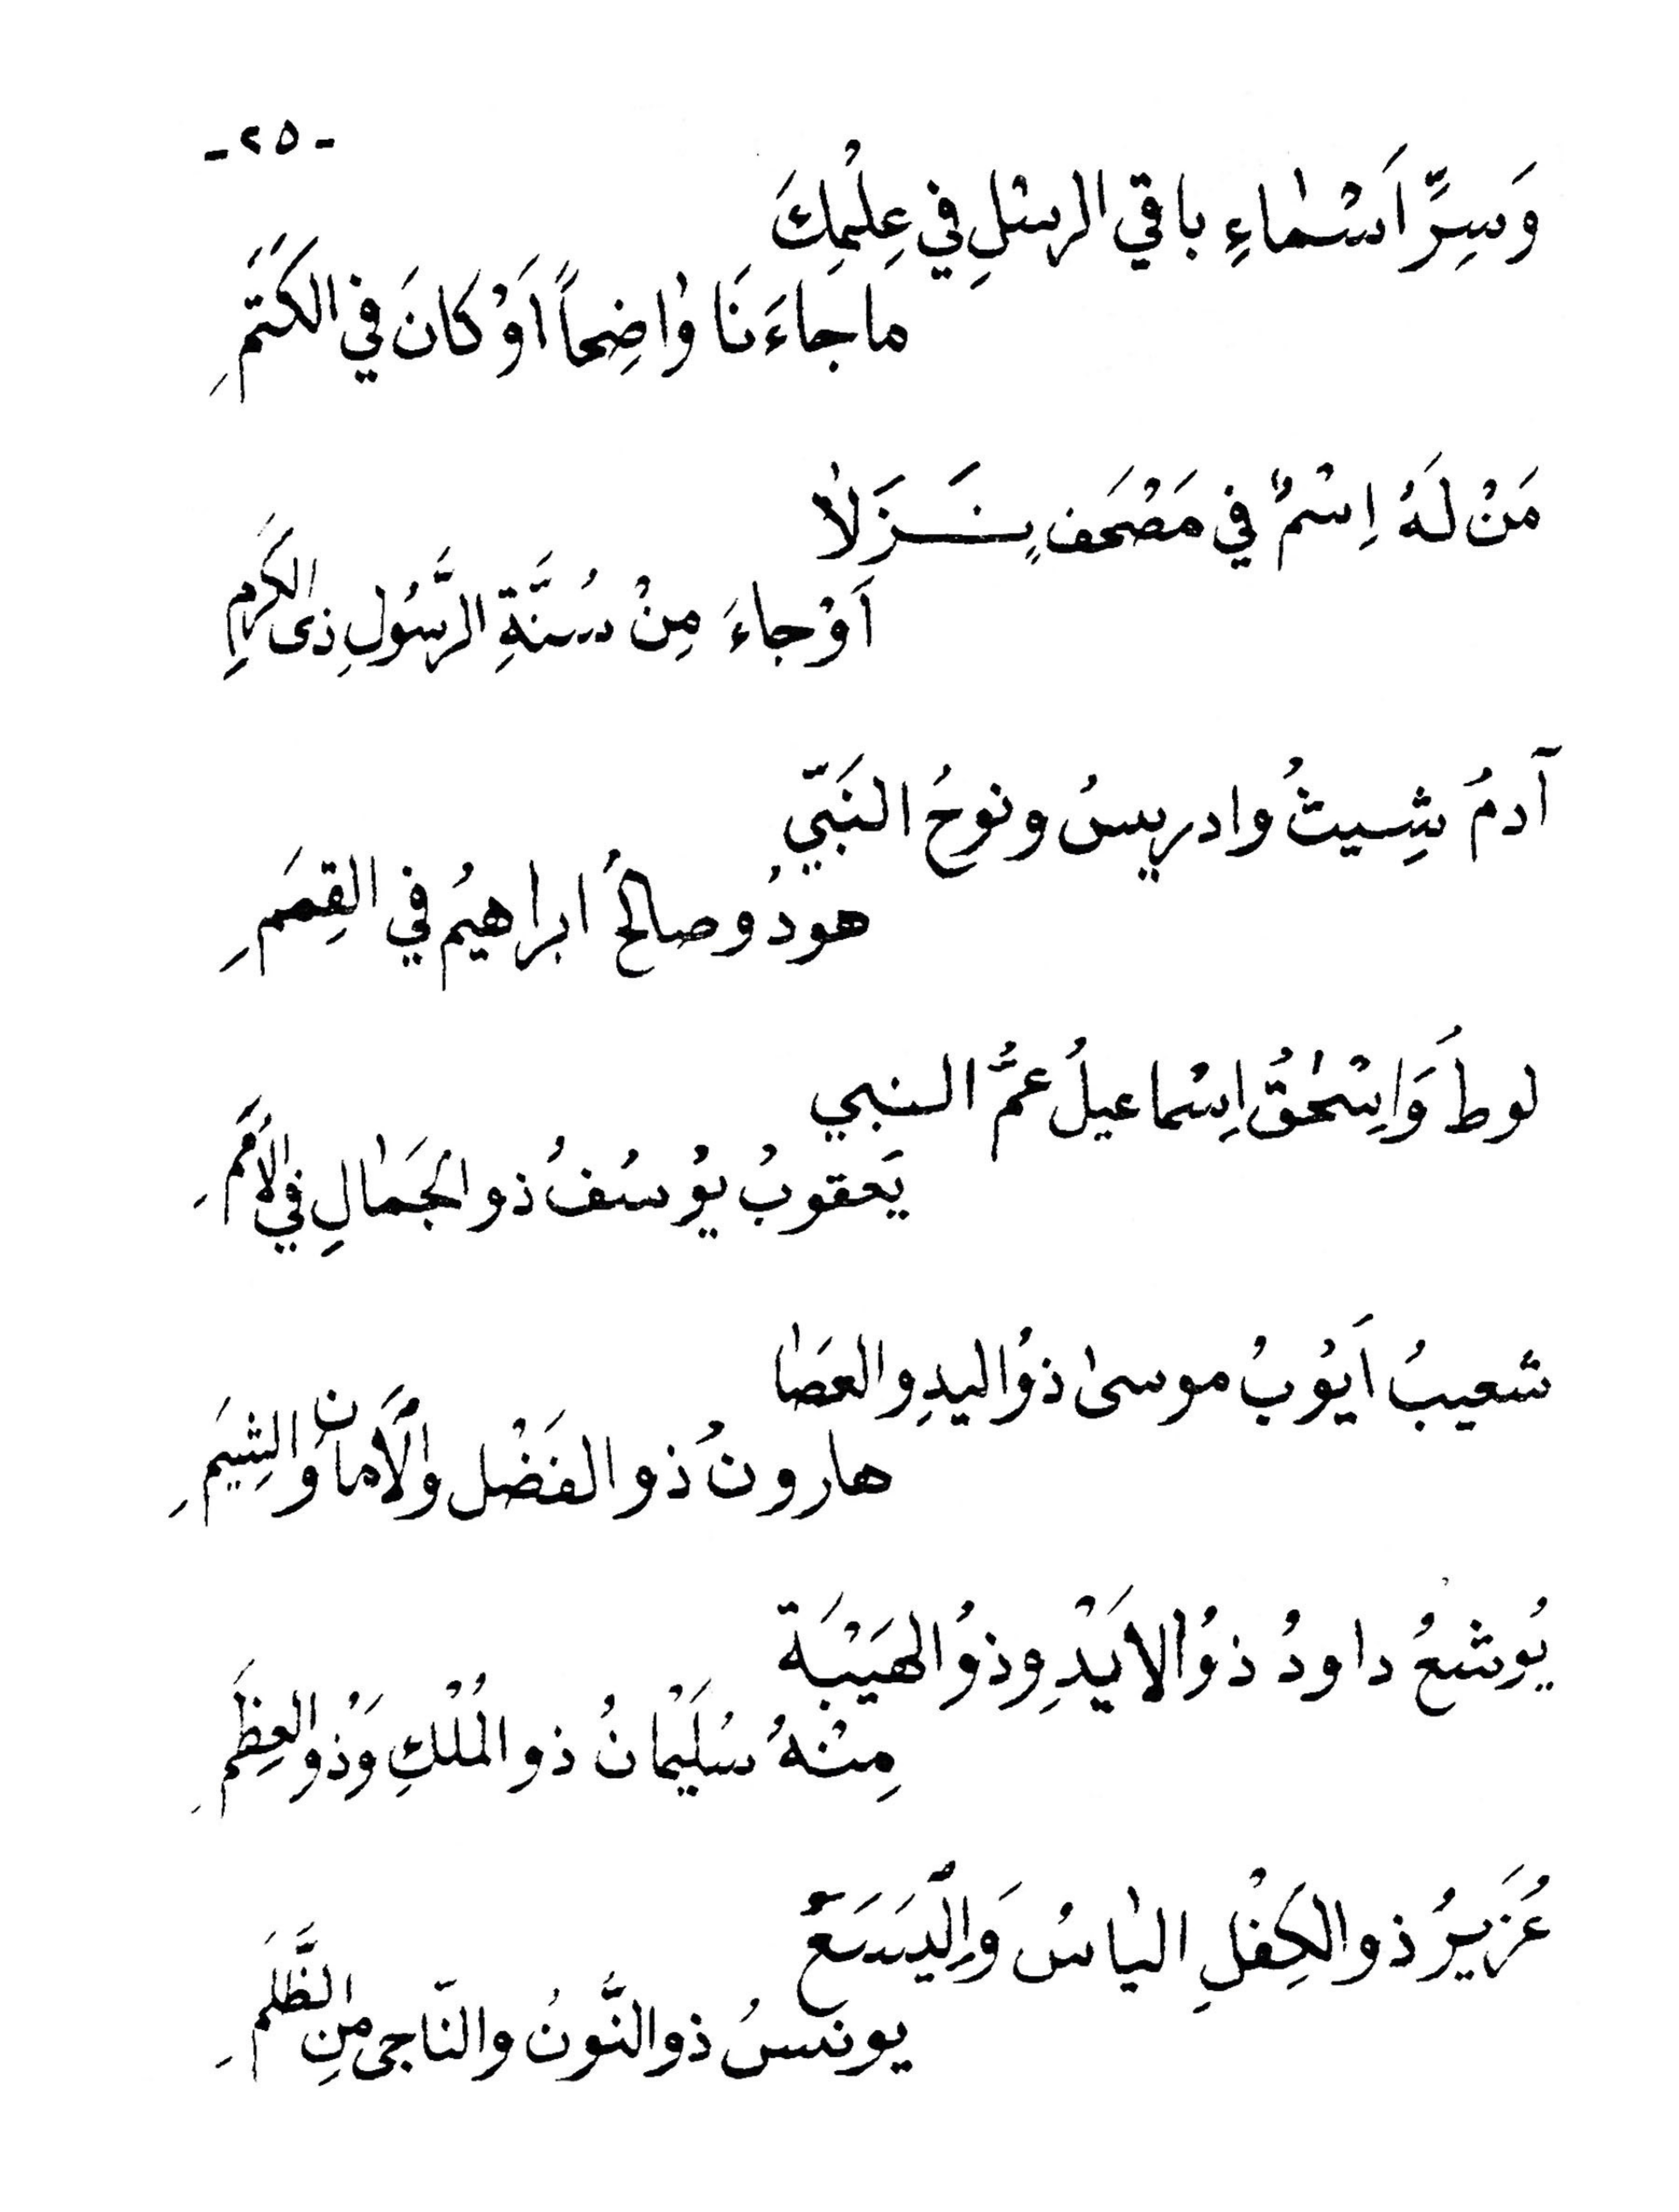 - ٢٥ -
وَسِرِّ اَسْمٰاءِ باقي الرسْلِ في عِلْمِكَ
ما جاءَنَا وٰاضِحاً اَوْ كانَ في الكَتَمِ
مَنْ لَهُ اِسْمٌ في مَصْحَفٍ نَزَلاٰ
اَوْ جاءَ مِنْ سُنَّةِ الرَّسُولِ ذى الكَرَمِ
آدمُ شِيثُ وادريسُ ونوحُ النَبّيِ
هودُ وصالحُ ابراهيمُ في القِمَمِ
لوطُ وَاِسْحٰقُ اِسْماعيلُ عمُّ النبي
يَعقوبُ يوُسُفُ ذو الجَمٰالِ في الاُمَمِ
شعيبُ اَيوُبُ موسىٰ ذوُ اليدِ والعَصَاٰ
هارونُ ذو الفَضْل والأمانِ والشِيَمِ
يُوشعُ داودُ ذوُ الايَدْ وذوُ الهَيَبْةَ
مِنْهُ سُلَيْمٰانُ ذو المُلْكِ وَذوُ العِظَمِ
عُزَيرُ ذو الكِفْلِ اليٰاسُ وَاِلْيَسَعُ
يونسُ ذو النَّونُ والنّاجى مِن الظَّلَمِ